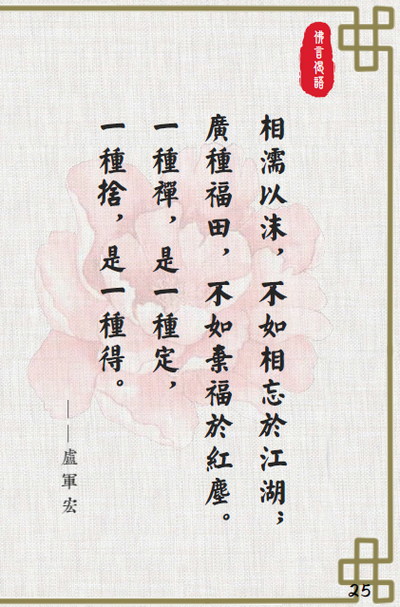 佛言偈語
相濡以沫，不如相忘於江湖；
廣種福田，不如棄福於紅塵。
一種禪，是一種定，
一種捨，是一種得。
——盧軍宏
25